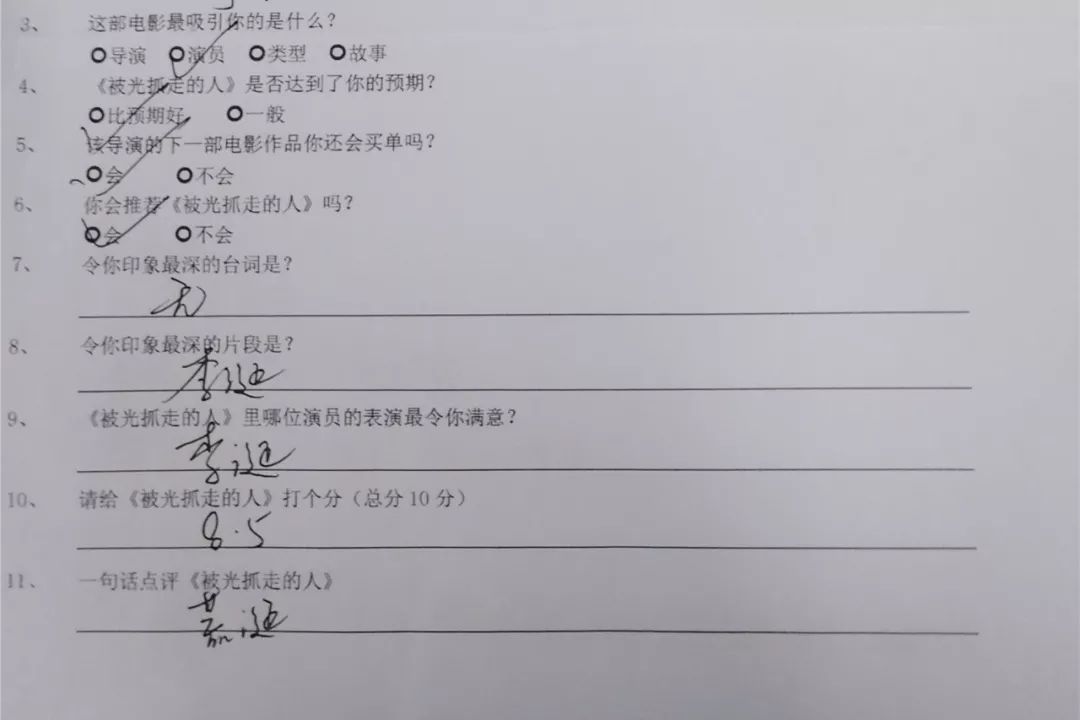 3、 这部电影最吸引你的是什么？
导演 演员 类型 故事
4、 《被光抓走的人》是否达到了你的预期？
比预期好 一般
5、 该导演的下一部电影作品你还会买单吗？
会 不会
6、 你会推荐《被光抓走的人》吗？
会 不会
7、 令你印象最深的台词是？
无
8、 令你印象最深的片段是？
李
9、 《被光抓走的人》里哪位演员的表演最令你满意？
李
10、 请给《被光抓走的人》打个分（总分10分）
8.5
11、 一句话点评《被光抓走的人》